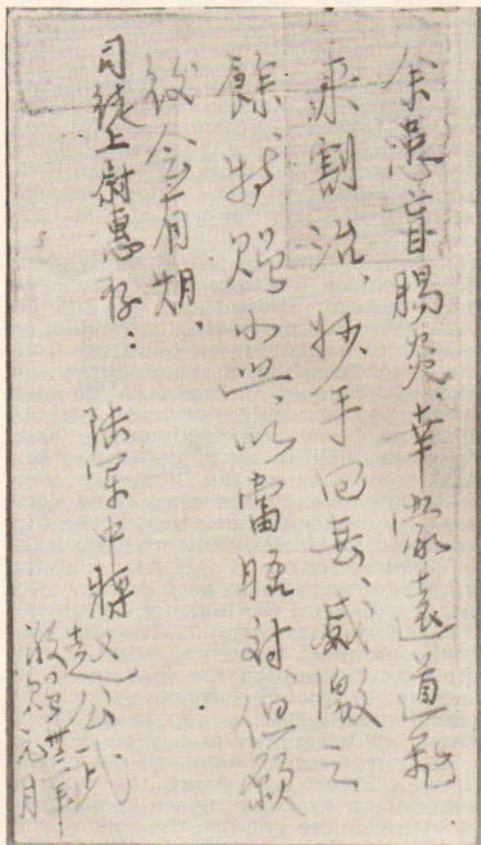 余患盲腸炎、幸蒙遠道飛
來割治、妙手回春、感激之
餘、特贈小照、以當晤対、但願
後会有期、
司徒上尉惠存：
陸軍中將趙公武
敬贈 元月